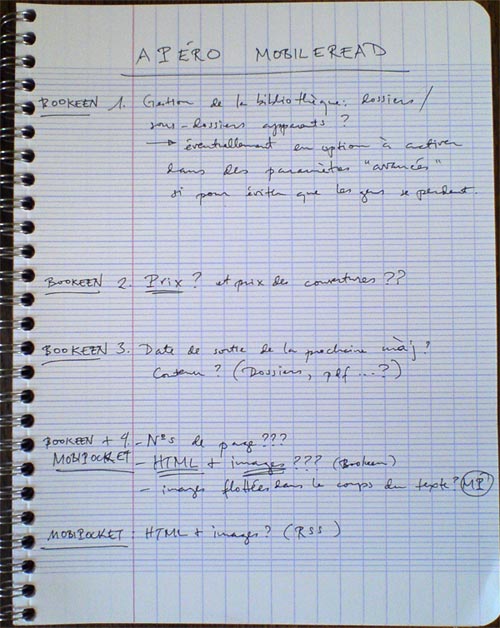 APÉRO MOBILEREAD
BOOKEEN 1. Gestion de la bibliothèque : dossiers /
sous-dossiers apparents ?
→ éventuellement en option à activer
dans des paramètres "avancés"
si pour éviter que les gens se perdent.
BOOKEEN 2. Prix ? et prix des couvertures ??
BOOKEEN 3. Date de sortie de la prochaine màj ?
Contenu ? (Dossiers, pdf ... ?)
BOOKEEN + 4. - Nos de page ???
MOBIPOCKET - HTML + images ??? (Bookeen)
- images flottées dans le corps du texte ? (MP)
MOBIPOCKET : HTML + images ? (RSS)